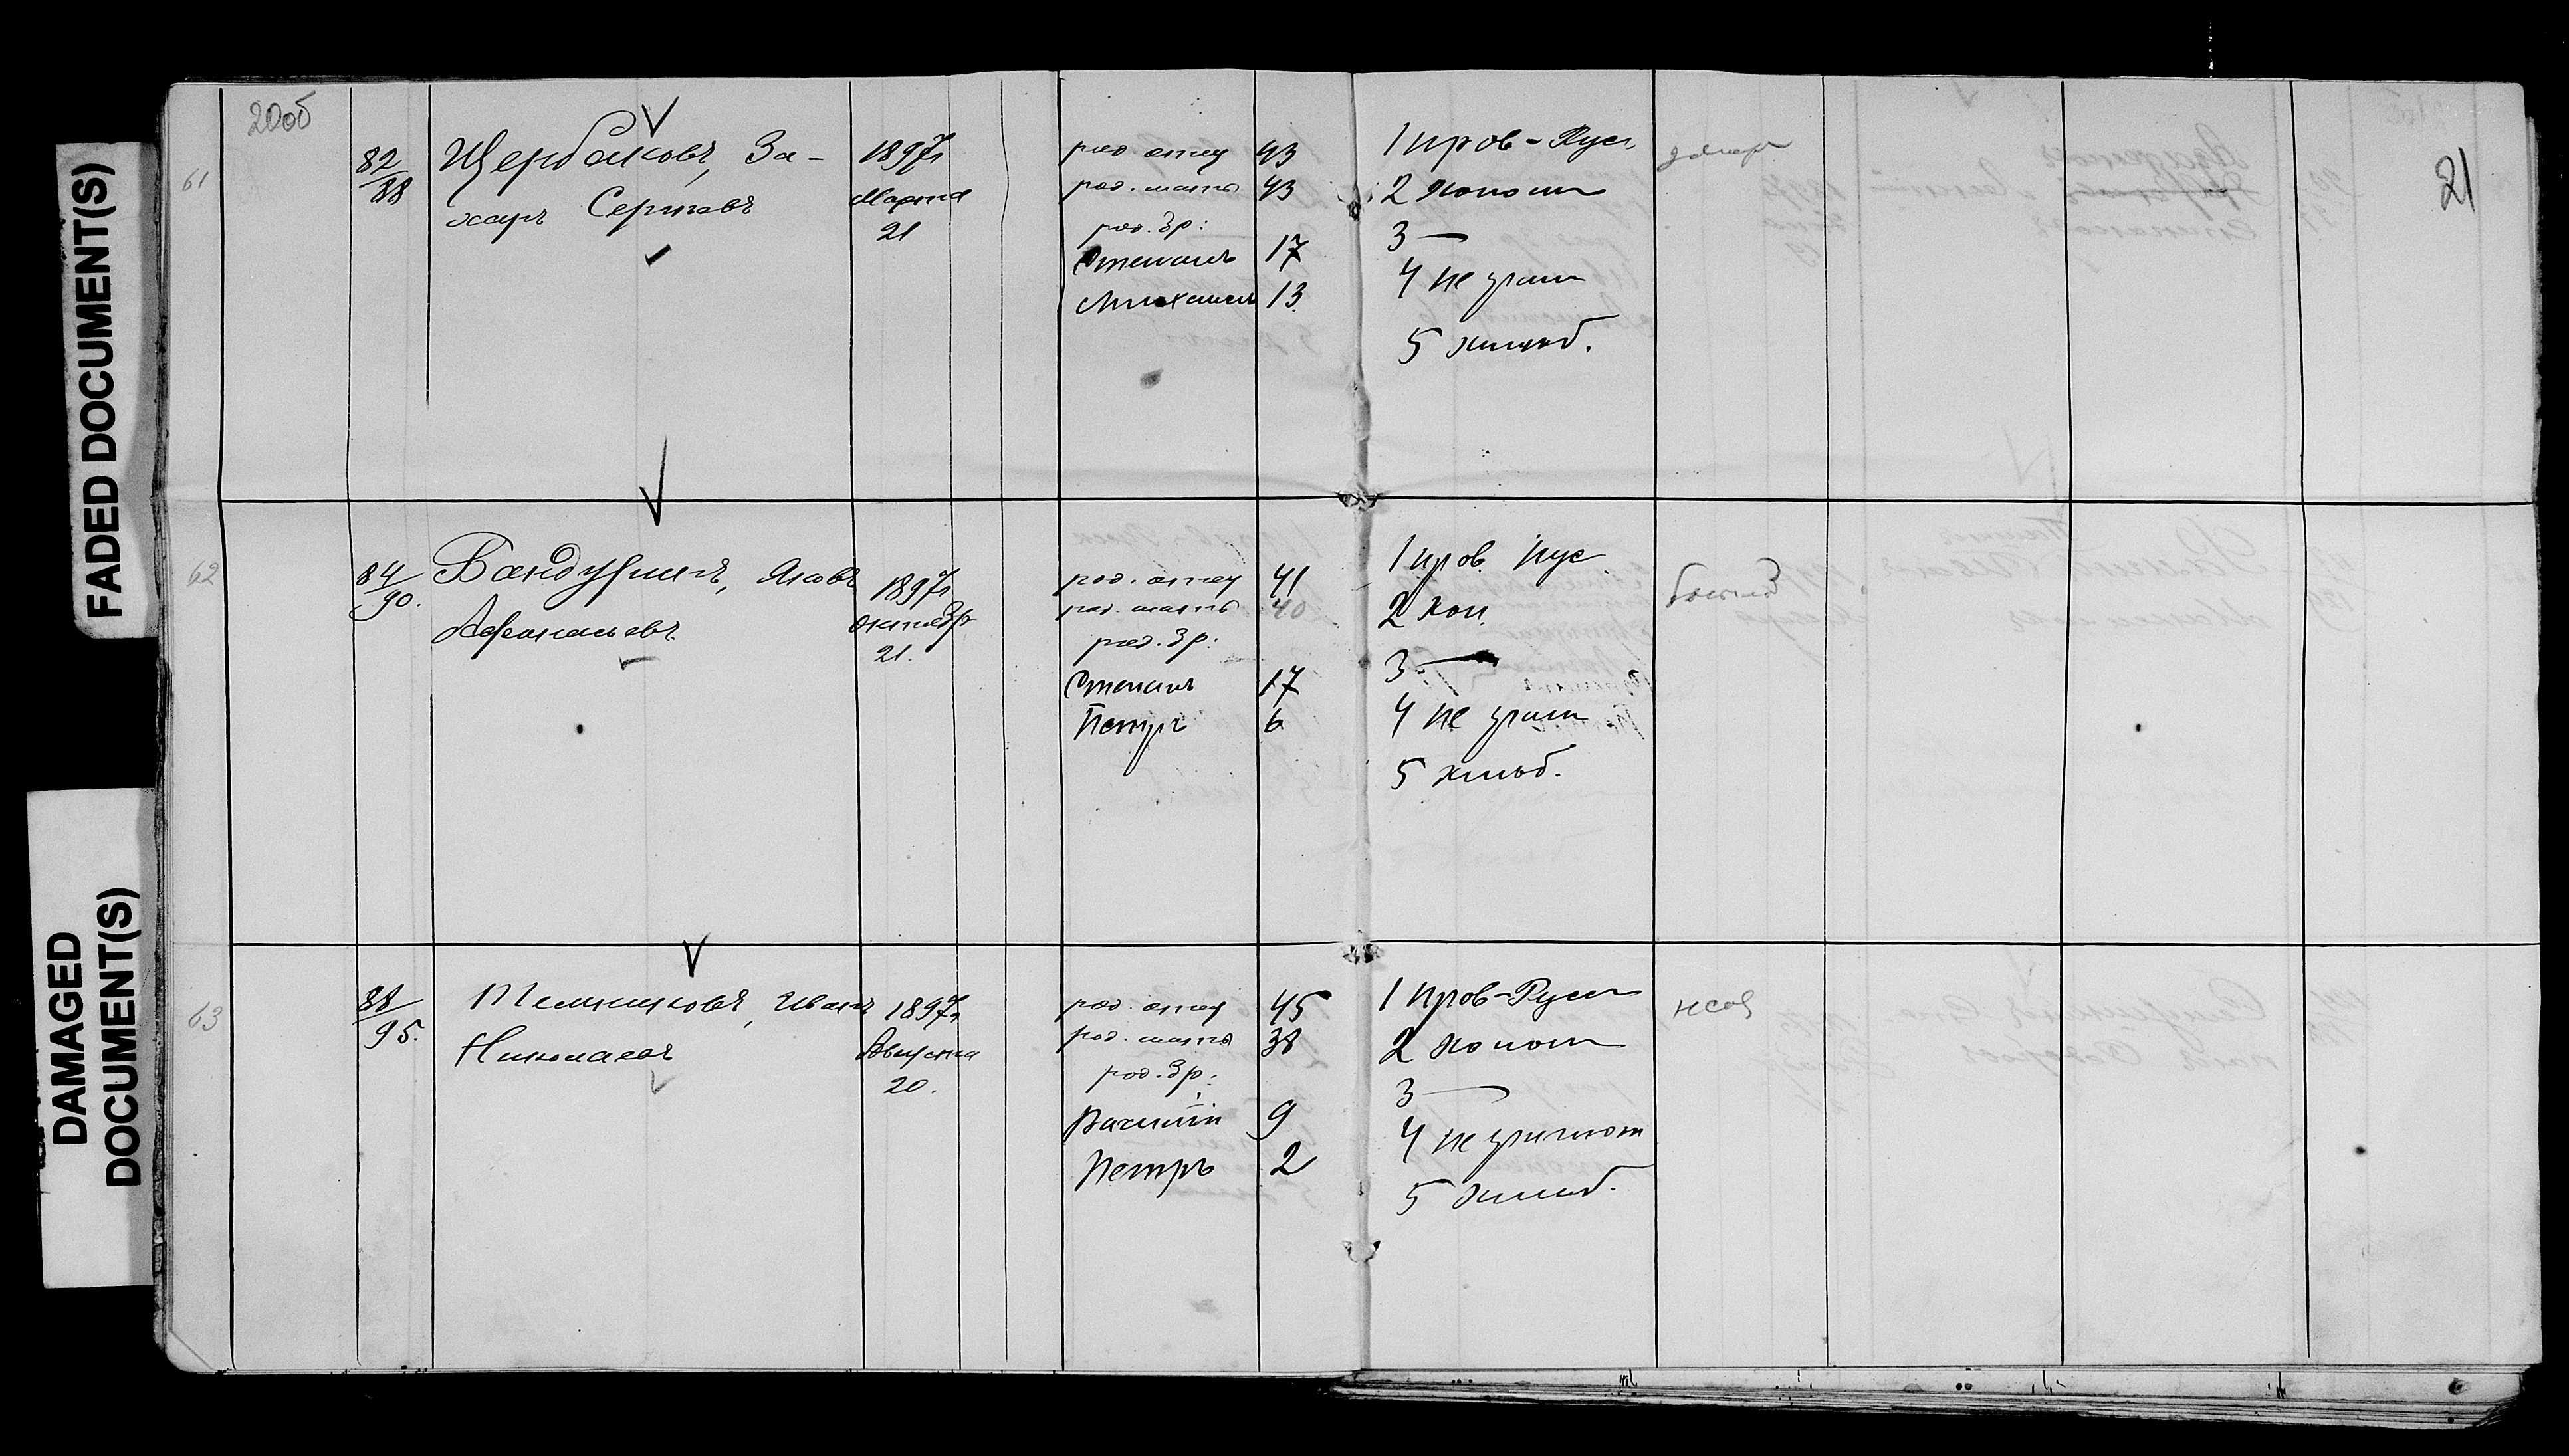 FADED DOCUMENT(S)
DAMAGED
DOCUMENT(S)
20об
21
61
82/88
Щербаковъ, За-
харъ Сергѣевъ
1897г.
Марта
21
род. отец 43
род. мать 43
род. бр:
Степанъ 17
Михаилъ 13
1 прав-Рус.
2 холост
3 —
4 не грам
5 хлѣб.
62
84/90.
Бандуринъ, Яковъ
Афанасьевъ
1897г.
Октябр
21.
род. отец 41
род. мать 40
род. бр:
Степанъ 17
Петръ 6
1 прав. Рус.
2 хол.
3 —
4 не грам
5 хлѣб.
63
88/95.
Иванъ
Николаевъ
1897г.
Августа
20.
род. отец 45
род. мать 38
род. бр:
Василій 9
Петръ 2
1 Прав-Русск
2 холост
3 —
4 не грамот
5 хлѣб.